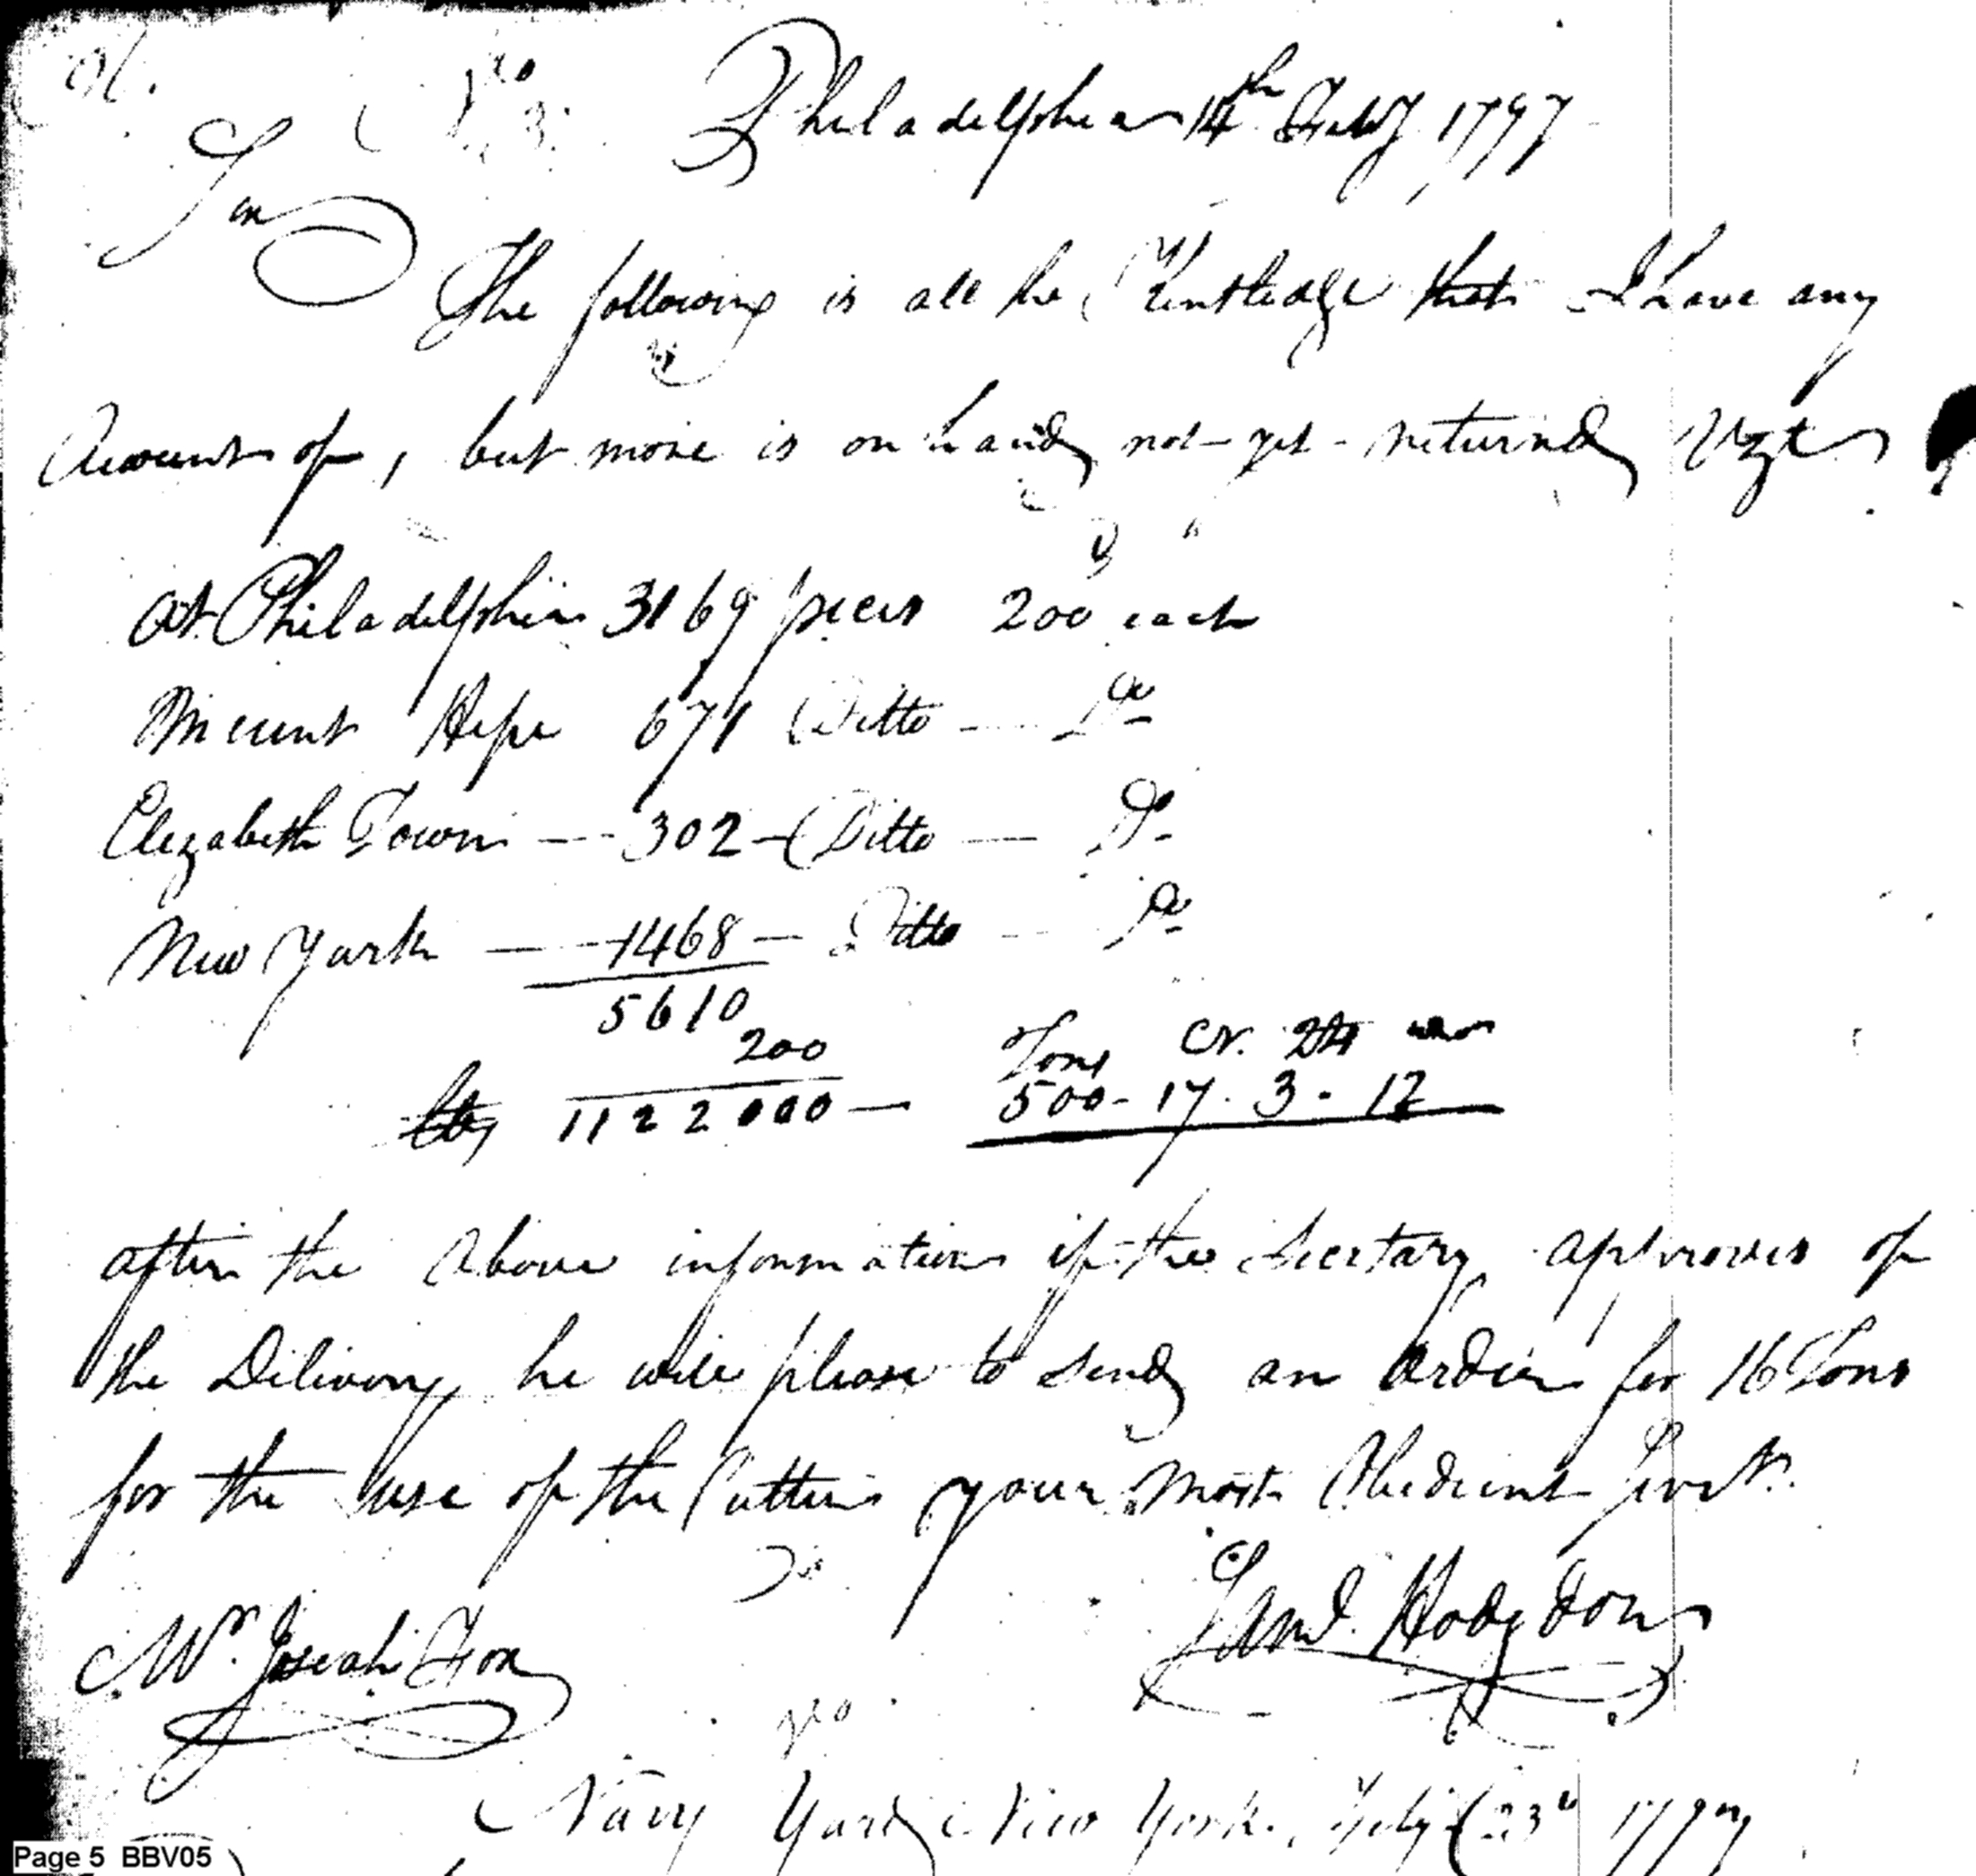 Philadelphia 14th Feby 1797
Sir
The following is all the Kentledge that I have any
Account of, but more is on hand not yet returned Vizt
At Philadelphia 3169 pieces 200 each
Mount Hope 671 Ditto — Do
Elizabeth Town — 302 — Ditto — Do
New York — 1468 — Ditto — Do
5610
200
Tons Cr. Qr
1122000 — 500 - 17 . 3 . 12
after the Above information if the Secretary approves of
the Delivery he will please to send an Order for 16 Tons
for the use of the Cutter your most Obedient Servt.
Saml. Hodgdon
Mr. Josiah Fox
Navy Yard New York, Feby 23d 1797
Page 5 BBV05